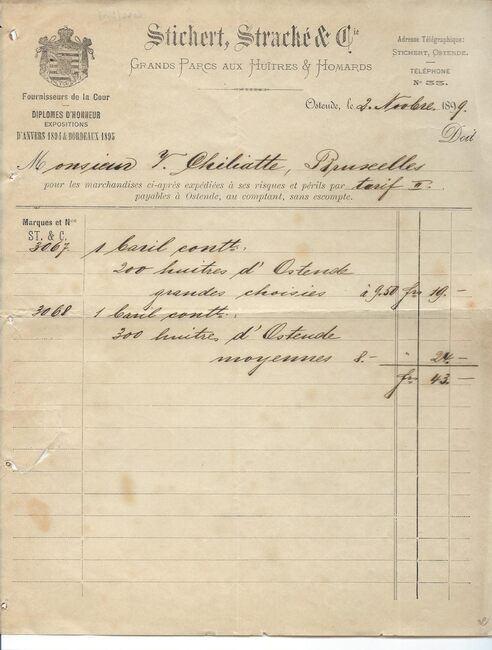 Stichert, Straché & Cie
Grands Parcs aux Huîtres & Homards
Adresse Télégraphique:
Stichert, Ostende.
TÉLÉPHONE
No 55.
Fournisseurs de la Cour
DIPLOMES D'HONNEUR
EXPOSITIONS
D'ANVERS 1894 & BORDEAUX 1895
Ostende, le 2 Novbre. 1899.
Doit
Monsieur V. Chiliatte, Bruxelles
pour les marchandises ci-après expédiées à ses risques et périls par tarif II.
payables à Ostende, au comptant, sans escompte.
Marques et Nos
ST. & C.
3067 1 Baril contt.
200 huitres d'Ostende
grandes choisies à 9.50 fr 19.—
3068 1 Baril contt.
300 huitres d'Ostende
moyennes 8.- " 24.—
fr 43.—